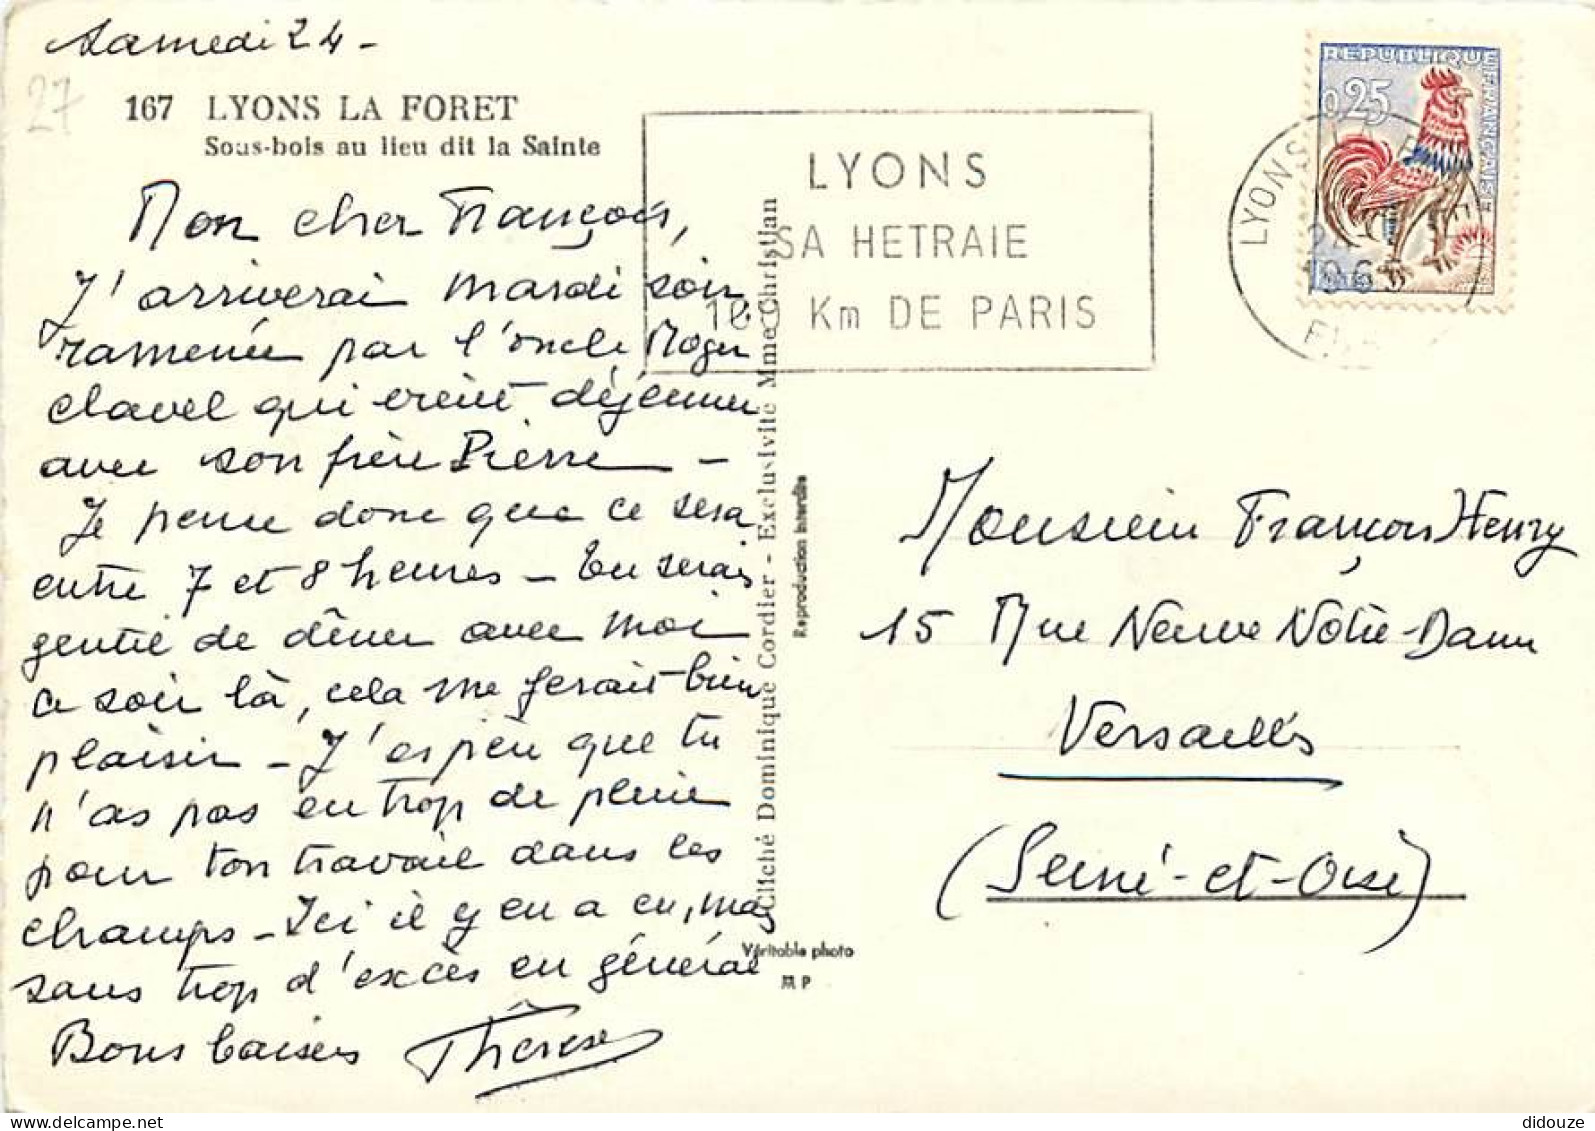 Samedi 24 -
27
167 LYONS LA FORET
Sous-bois au lieu dit la Sainte
Mon cher François,
J'arriverai mardi soir,
ramenée par l'oncle Roger
Clavel qui vient déjeuner
avec son frère Pierre -
Je pense donc que ce sera
entre 7 et 8 heures - Tu serais
gentil de dîner avec moi
ce soir là, cela me ferait bien
plaisir - J'espère que tu
n'as pas eu trop de pluie
pour ton travail dans les
champs - Ici il y en a eu, mais
sans trop d'excès en général
Bons baisers Thérèse
Cliché Dominique Cordier - Exclusivité Mme Christian
Reproduction interdite
Véritable photo
M P
LYONS
SA HETRAIE
Km DE PARIS
REPUBLIQUE FRANÇAISE
0,25
LYONS
24
1965
Monsieur François Henry
15 Rue Neuve Notre-Dame
Versailles
(Seine-et-Oise)
didouze
delcampe.net